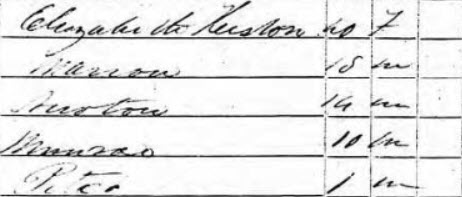 Elizabeth Huston 40 F
Marion 18 m
Huston 14 m
Monroe 10 m
Peter 1 m